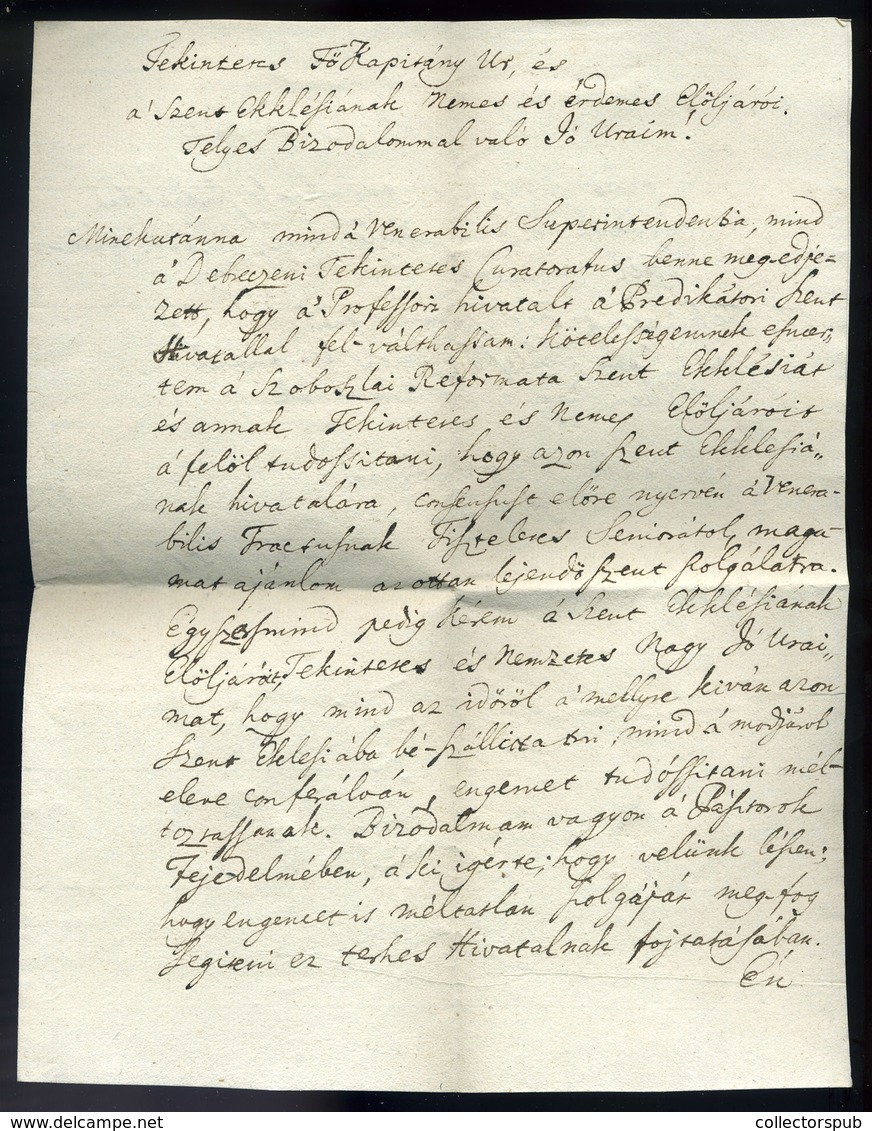 Tekintetes FőKapitány Ur, és
a' Szent Ekklésiának Nemes és érdemes Elöljárói.
Telyes Bizodalommal való Jó Uraim!
Minekutánna mind á Venerabilis Superintendentia, mind
á Debreczeni Tekintetes Curatoratus benne meg-edje-
zett, hogy á Professori hivatalt á Prédikátori Szent
Hivatallal fel-válthassam: kötelességemnek esmer„
tem á Szoboszlai Reformata Szent Ekklésiát
és annak Tekintetes és Nemes Elöljáróit
á felöl tudossitani, hogy azon szent Ekklesiá„
nak hivatalára, consensust előre nyervén á Venera-
bilis Tractusnak Tiszteletes Seniorátol, maga-
mat ajánlom az ottan lejendö szent szolgálatra.
Egyszersmind pedig kérem á Szent Ekklésiának
Elöljáróit, Tekintetes és Nemzetes Nagy Jó Urai„
mat, hogy mind az idöröl á mellyre kiván azon
Szent Eklesiába bé-szállittatni, mind á modjárol
eleve conferálván, engemet tudóssitani mél-
toztassanak. Bizodalmam vagyon á Pásztorok
Fejedelmében, á ki igérte, hogy velünk lészen;
hogy engemet is méltatlan szolgáját meg-fog
segiteni ez terhes Hivatalnak fojtatásában.
Én
collectorspub